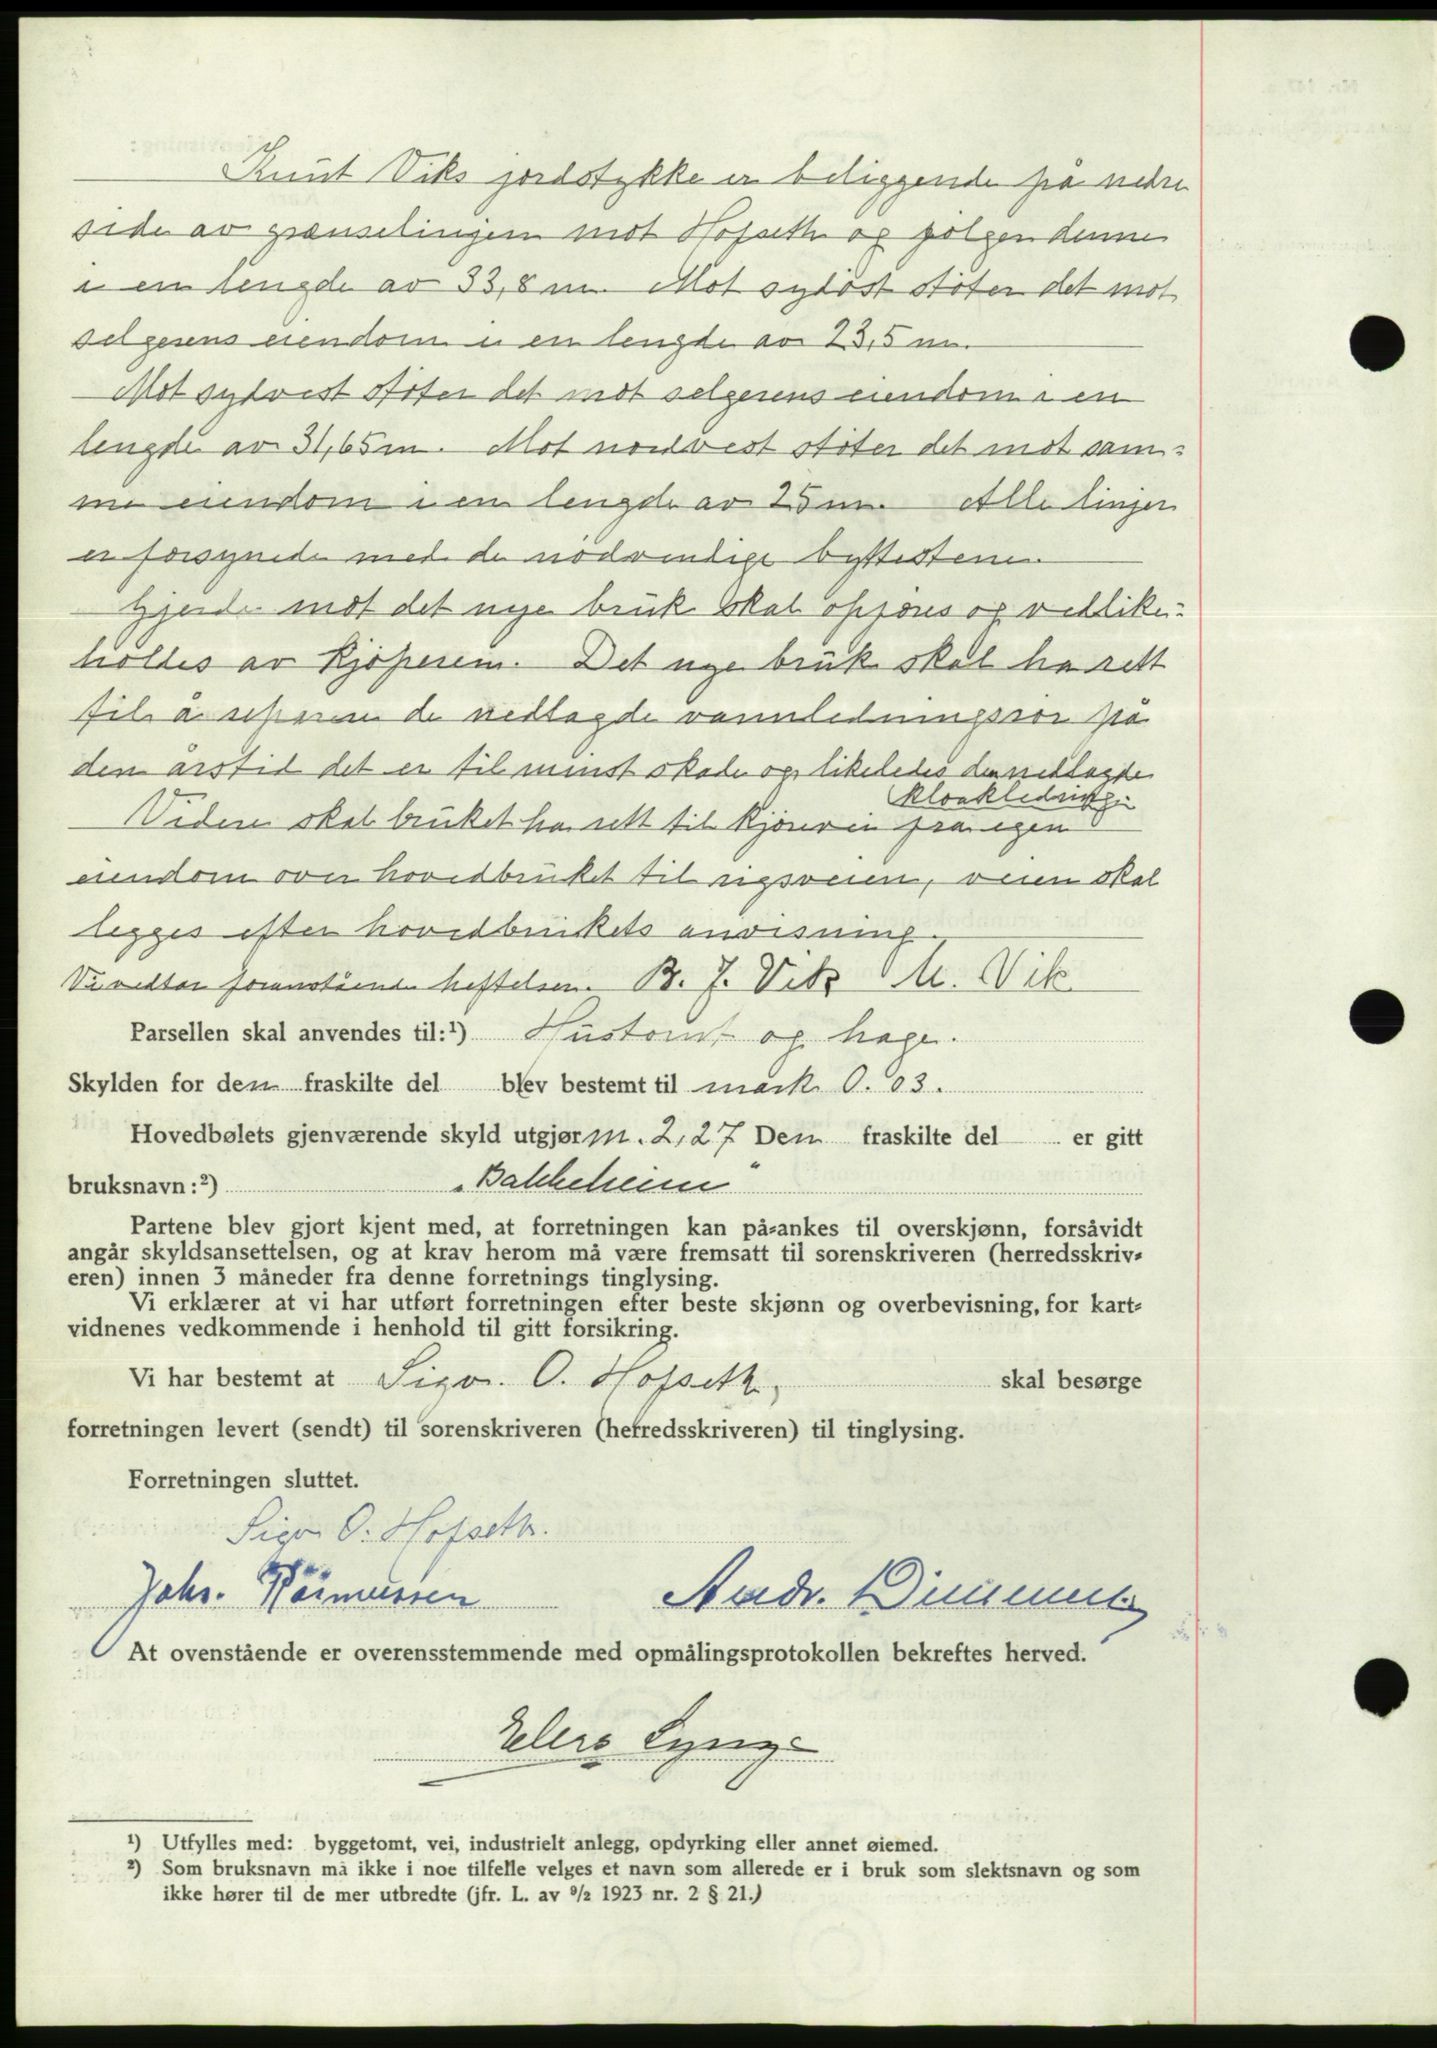 Knut Viks jordstykke er beliggende på nedre
side av grænselinjen mot Hofseth og følger denne
i en lengde av 33,8 m. Mot sydøst støter det mot
selgerens eiendom i en lengde av 23,5 m.
Mot sydvest støter det mot selgerens eiendom i en
lengde av 31,65 m. Mot nordvest støter det mot sam-
me eiendom i en lengde av 25 m. Alle linjer
er forsynede med de nødvendige byttestene.
Gjerde mot det nye bruk skal opføres og vedlike-
holdes av kjøperen. Det nye bruk skal ha rett
til å reparere de nedlagde vannledningsrør på
den årstid det er til minst skade og likeledes den nedlagde
kloakledning
Videre skal bruket ha rett til kjørevei fra egen
eiendom over hovedbruket til rigsveien, veien skal
legges efter hovedbrukets anvisning.
Vi vedtar foranstående heftelser. B. J. Vik M. Vik
Parsellen skal anvendes til:¹) Hustomt og hage.
Skylden for den fraskilte del blev bestemt til mark 0.03.
Hovedbølets gjenværende skyld utgjør m. 2,27 Den fraskilte del er gitt
bruksnavn:²) "Bakkeheim"
Partene blev gjort kjent med, at forretningen kan på-ankes til overskjønn, forsåvidt
angår skyldsansettelsen, og at krav herom må være fremsatt til sorenskriveren (herredsskriv-
eren) innen 3 måneder fra denne forretnings tinglysing.
Vi erklærer at vi har utført forretningen efter beste skjønn og overbevisning, for kart-
vidnenes vedkommende i henhold til gitt forsikring.
Vi har bestemt at Sigv. O. Hofseth, skal besørge
forretningen levert (sendt) til sorenskriveren (herredsskriveren) til tinglysing.
Forretningen sluttet.
Sigv O. Hofseth.
Johs. Rasmussen Andr. Dimmen
At ovenstående er overensstemmende med opmålingsprotokollen bekreftes herved.
Elers Lynge
¹) Utfylles med: byggetomt, vei, industrielt anlegg, opdyrking eller annet øiemed.
²) Som bruksnavn må ikke i noe tilfelle velges et navn som allerede er i bruk som slektsnavn og som
ikke hører til de mer utbredte (jfr. L. av 9/2 1923 nr. 2 § 21.)